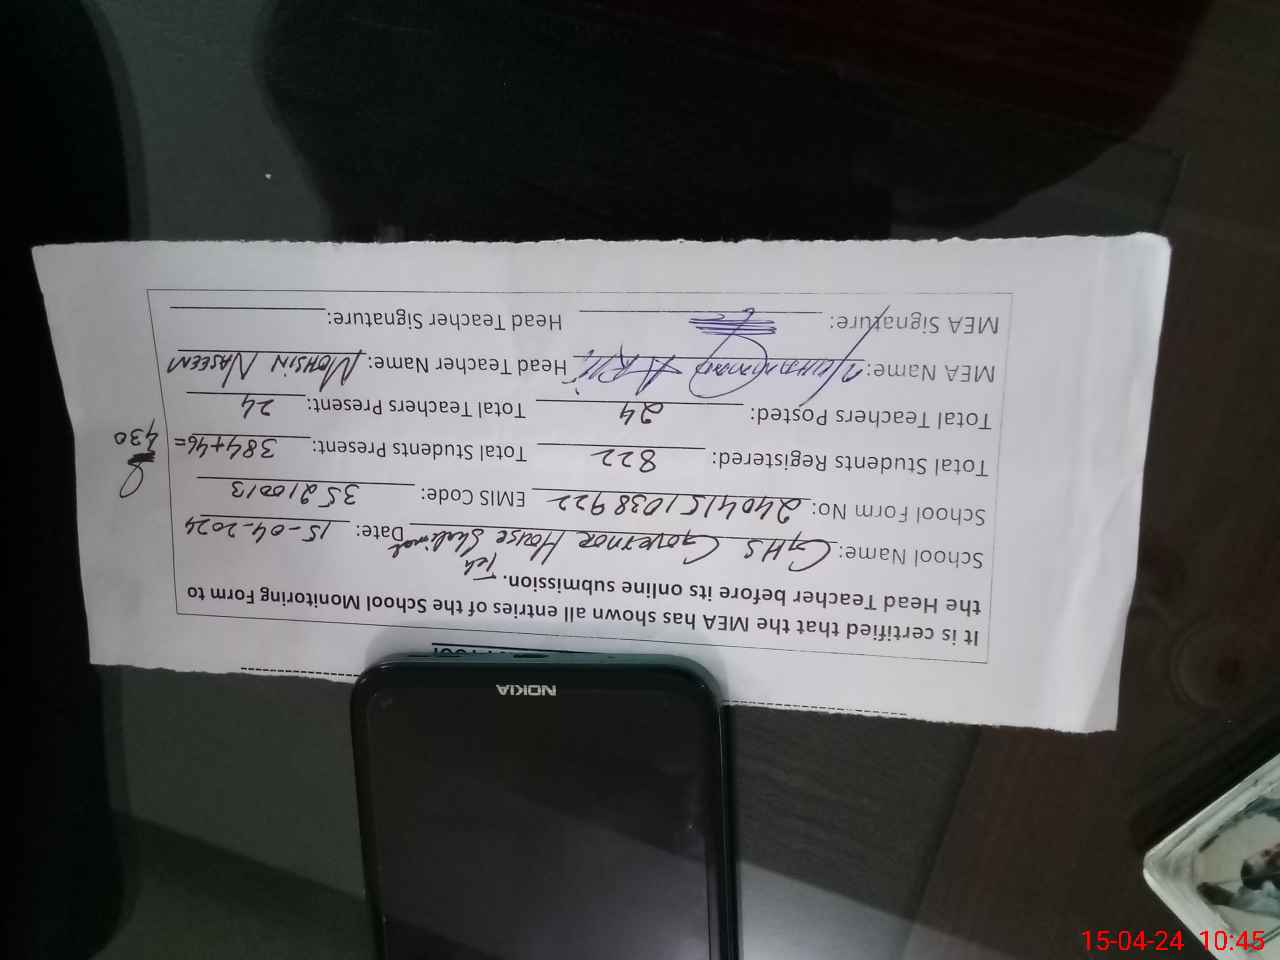 It is certified that the MEA has shown all entries of the School Monitoring Form to
the Head Teacher before its online submission.
School Name: GHS Governor House Teh Shalimar Date: 15-04-2024
School Form No: 2404151038922 EMIS Code: 35210013
Total Students Registered: 822 Total Students Present: 384+46= 430
Total Teachers Posted: 24 Total Teachers Present: 24
MEA Name: Head Teacher Name: MOHSIN NASEEM
MEA Signature: Head Teacher Signature:
NOKIA
15-04-24 10:45